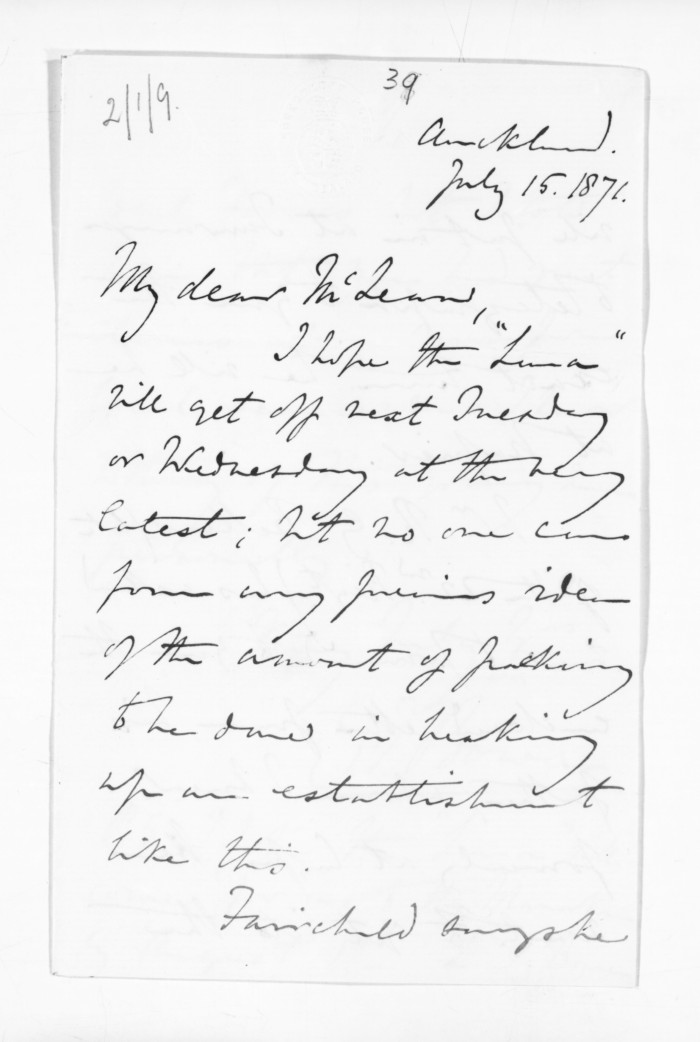 39
2/1/9.
Auckland.
July 15. 1871.
My dear McLean,
I hope the "Luna"
will get off next Tuesday
or Wednesday at the very
latest; but no one can
form any previous idea
of the amount of packing
to be done in breaking
up an establishment
like this.
Fairchild says he